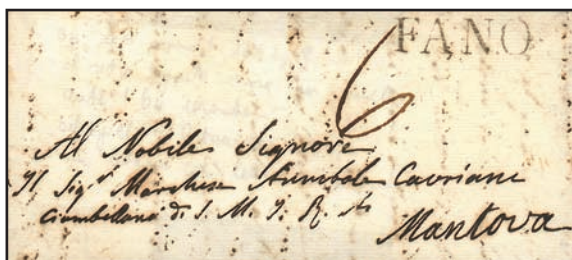 FANO
6
Al Nobile Signore
Il Sig.r Marchese Annibale Cavriani
Ciambellano di S. M. I. R. A.
Mantova